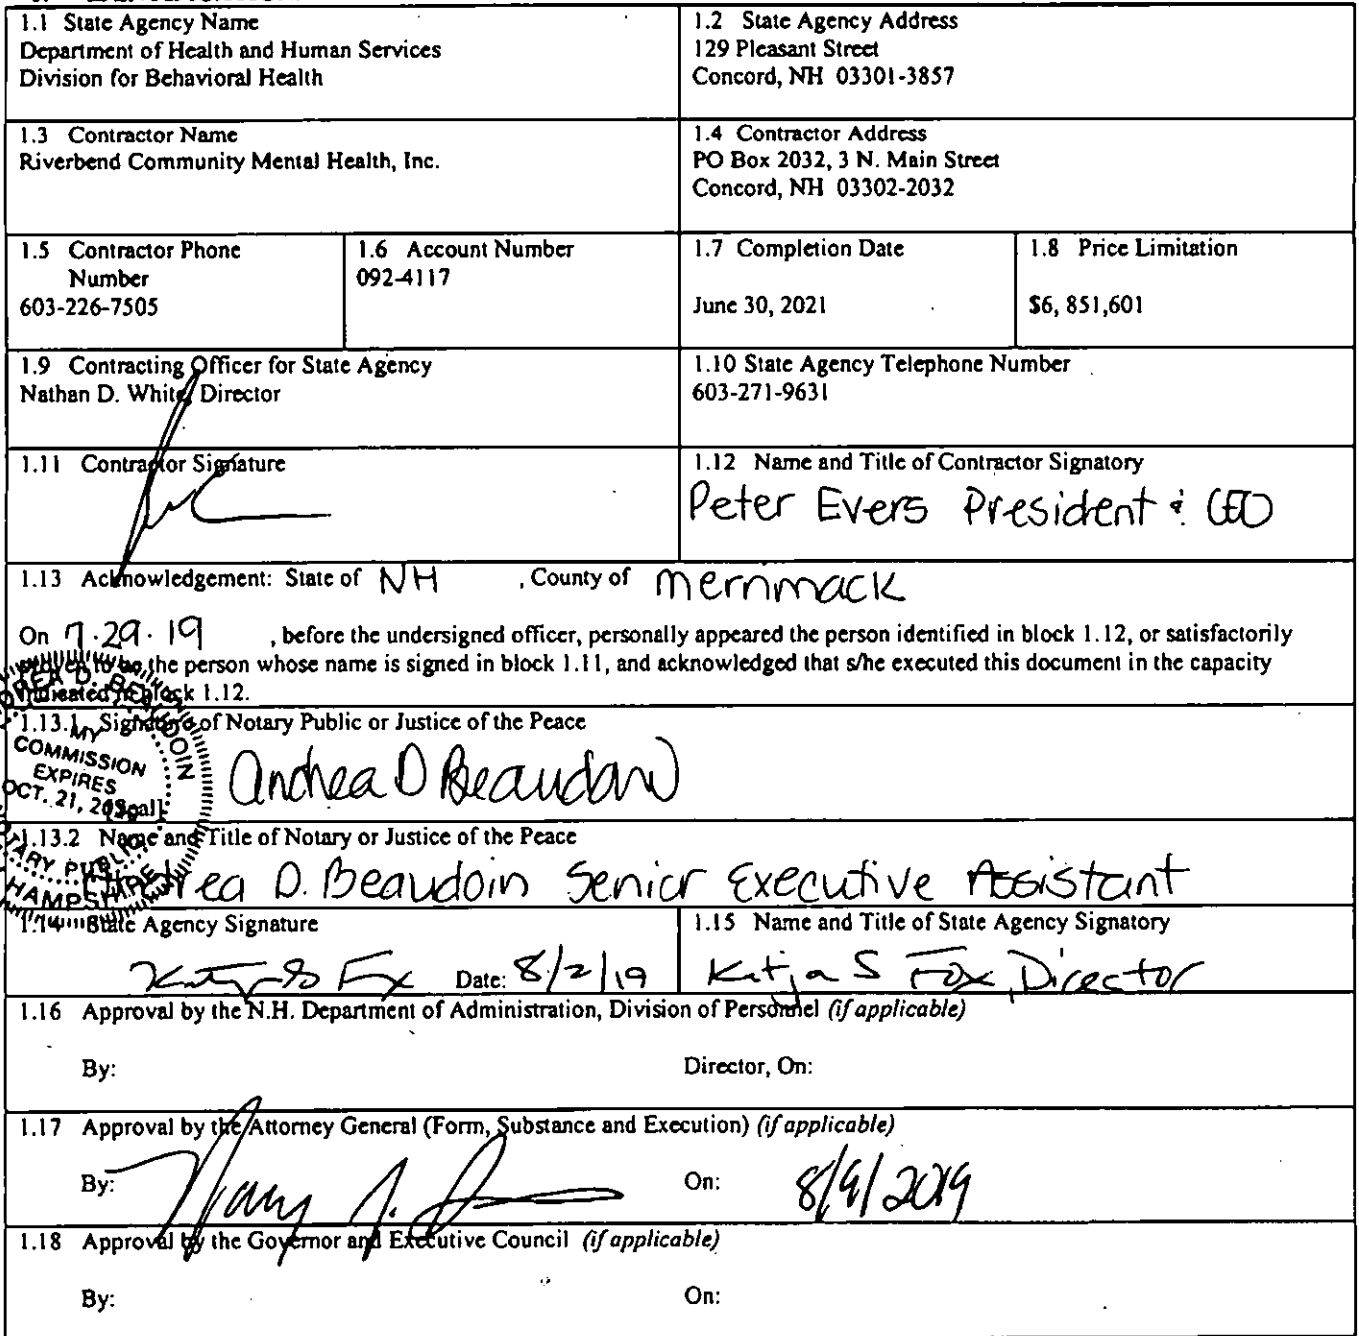 1.1 State Agency Name
Department of Health and Human Services
Division for Behavioral Health
1.2 State Agency Address
129 Pleasant Street
Concord, NH 03301-3857
1.3 Contractor Name
Riverbend Community Mental Health, Inc.
1.4 Contractor Address
PO Box 2032, 3 N. Main Street
Concord, NH 03302-2032
1.5 Contractor Phone
Number
603-226-7505
1.6 Account Number
092-4117
1.7 Completion Date
June 30, 2021
1.8 Price Limitation
$6, 851,601
1.9 Contracting Officer for State Agency
Nathan D. White, Director
1.10 State Agency Telephone Number
603-271-9631
1.11 Contractor Signature
1.12 Name and Title of Contractor Signatory
Peter Evers President & CEO
1.13 Acknowledgement: State of NH , County of Merrimack
On 7.29.19 , before the undersigned officer, personally appeared the person identified in block 1.12, or satisfactorily
proven to be the person whose name is signed in block 1.11, and acknowledged that s/he executed this document in the capacity
indicated in block 1.12.
1.13.1 Signature of Notary Public or Justice of the Peace
Andrea D Beaudoin
[Seal]
ANDREA D. BEAUDOIN
MY
COMMISSION
EXPIRES
OCT. 21,
NOTARY PUBLIC
HAMPSHIRE
1.13.2 Name and Title of Notary or Justice of the Peace
Andrea D. Beaudoin Senior Executive Assistant
1.14 State Agency Signature
Date: 8/2/19
1.15 Name and Title of State Agency Signatory
Katja S Fox, Director
1.16 Approval by the N.H. Department of Administration, Division of Personnel (if applicable)
By: Director, On:
1.17 Approval by the Attorney General (Form, Substance and Execution) (if applicable)
By: On: 8/9/2019
1.18 Approval by the Governor and Executive Council (if applicable)
By: On: